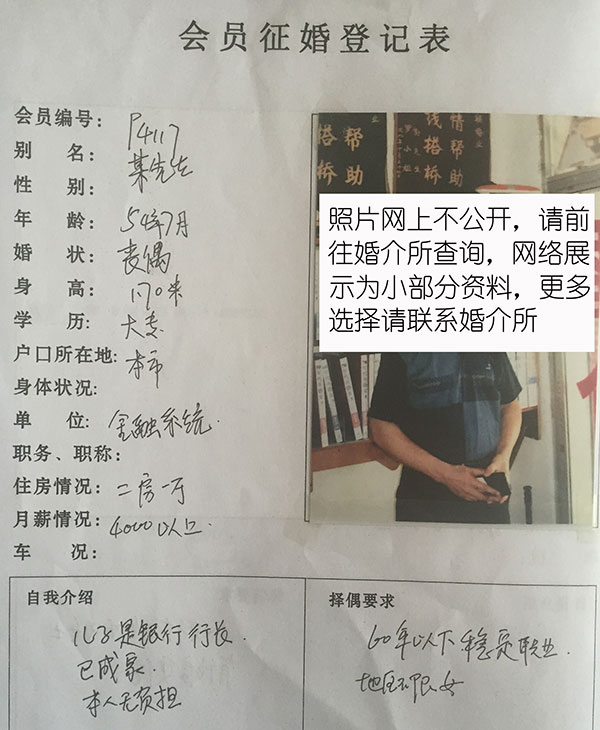 会员征婚登记表
会员编号: P4117
别 名: 某先生
性 别:
年 龄: 54年7月
婚 状: 丧偶
身 高: 1.70米
学 历: 大专
户口所在地: 本市
身体状况:
单 位: 金融系统.
职务、职称:
住房情况: 二房一厅
月薪情况: 4000以上.
车 况:
搭桥
帮助
线搭桥
情帮助
照片网上不公开，请前
往婚介所查询，网络展
示为小部分资料，更多
选择请联系婚介所
自我介绍
儿子是银行行长.
已成家.
本人无负担
择偶要求
60年以下稳定职业.
地区不限